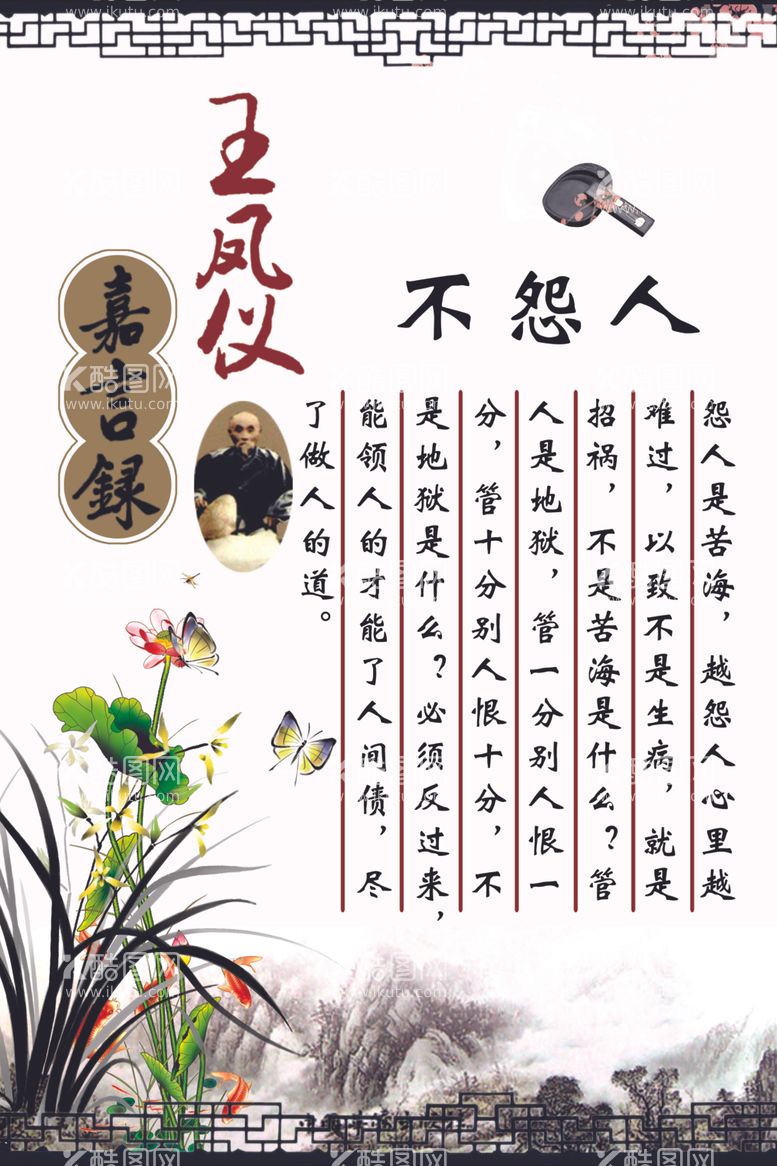 王凤仪
嘉言録
不怨人
怨人是苦海，越怨人心里越
难过，以致不是生病，就是
招祸，不是苦海是什么？管
人是地狱，管一分别人恨一
分，管十分别人恨十分，不
是地狱是什么？必须反过来，
能领人的才能了人间债，尽
了做人的道。
酷图网
www.ikutu.com